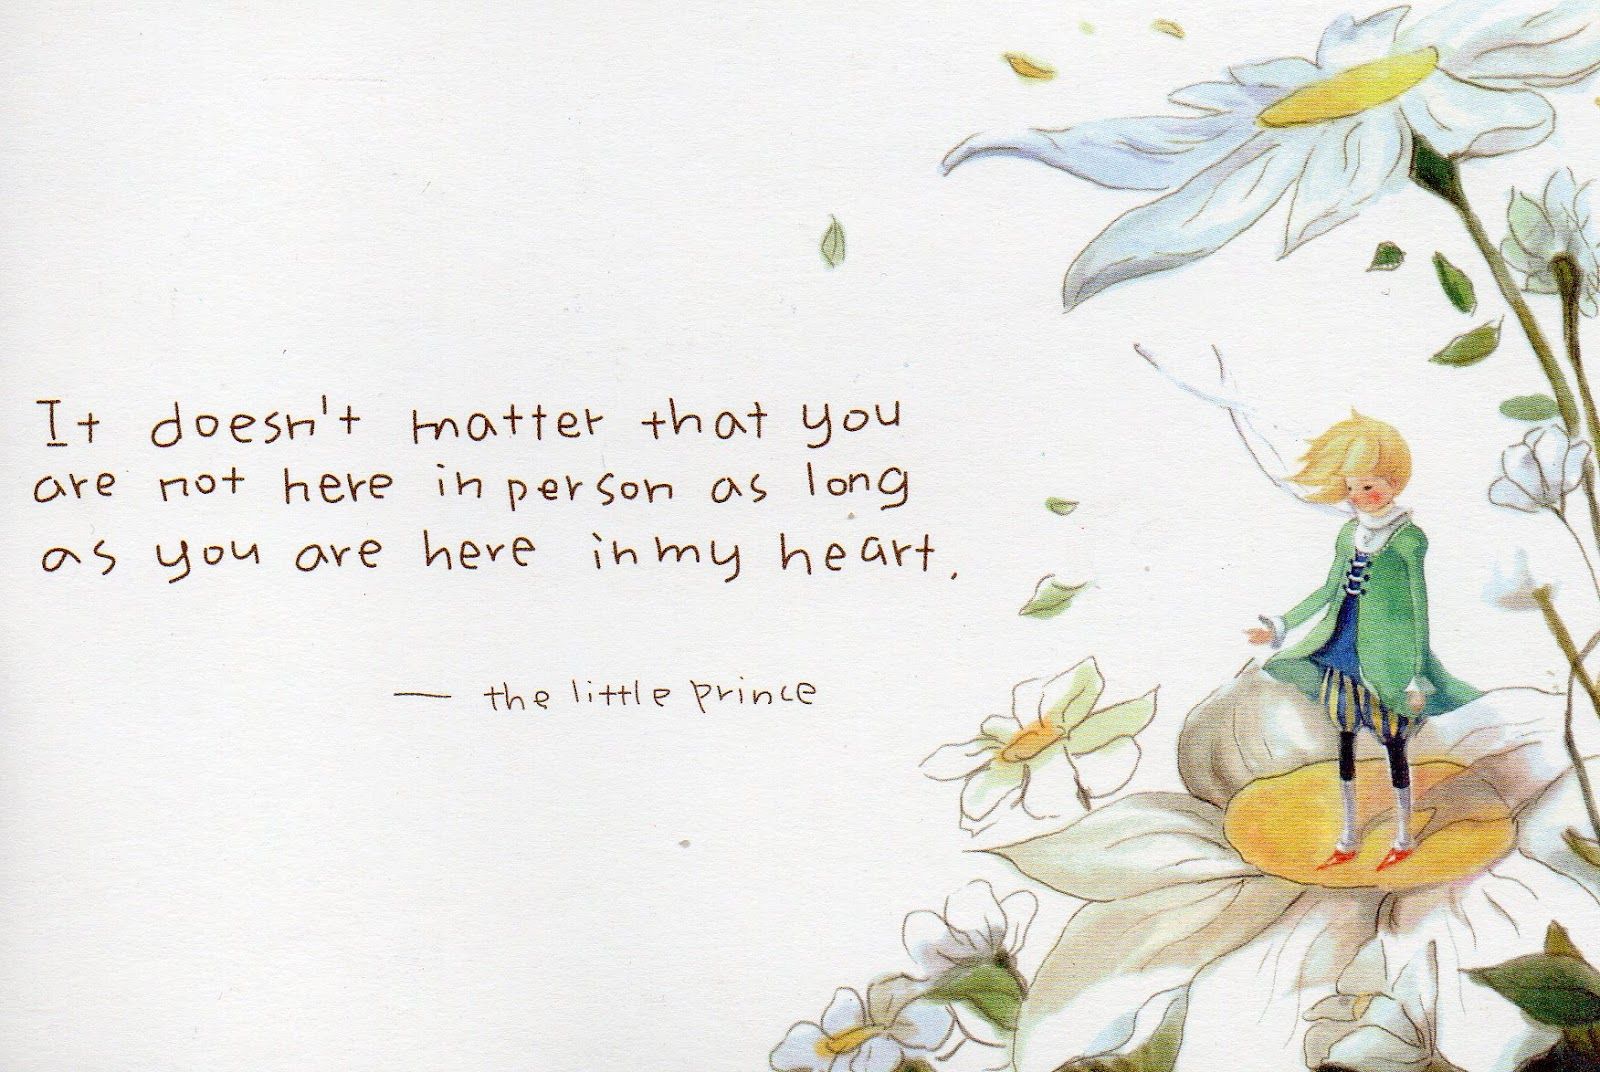 It doesn't matter that you
are not here in person as long
as you are here in my heart.
— the little prince